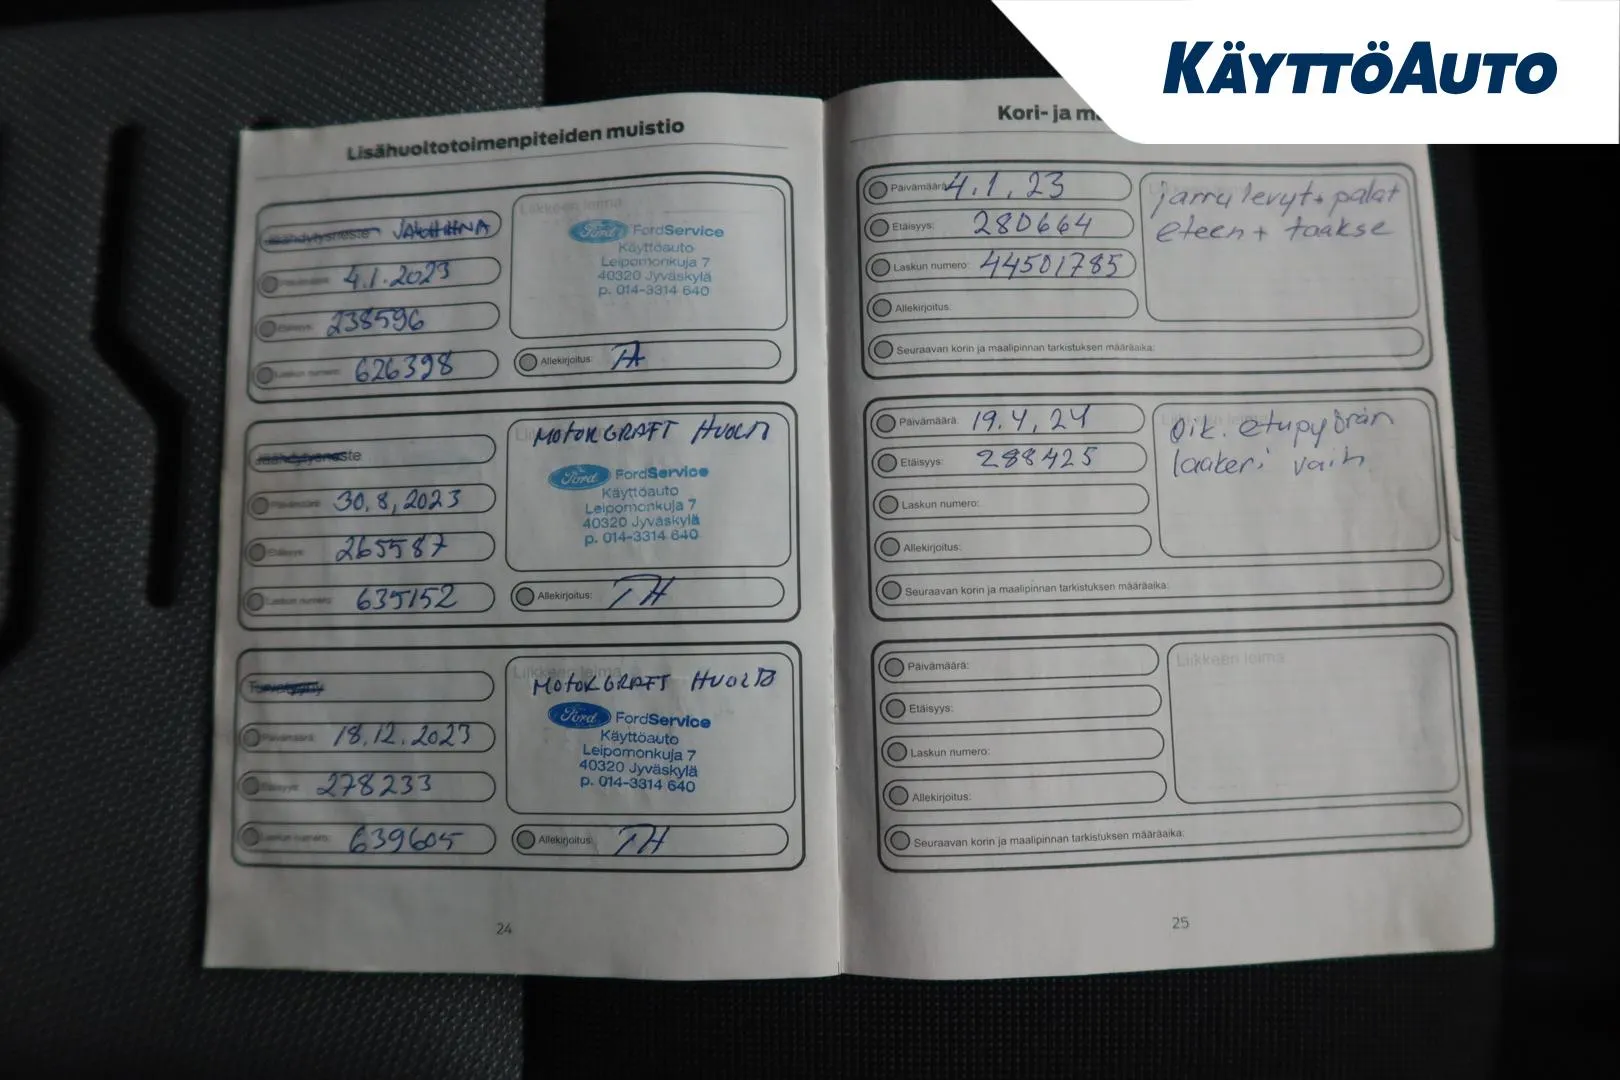 KÄYTTÖAUTO
Lisähuoltotoimenpiteiden muistio
Liikkeen leima
Ford FordService
Käyttöauto
Leipomonkuja 7
40320 Jyväskylä
p. 014-3314 640
4.1.2023
Etäisyys: 238596
Laskun numero: 626398
Allekirjoitus: TH
MOTORCRAFT HUOLTO
Ford FordService
Käyttöauto
Leipomonkuja 7
40320 Jyväskylä
p. 014-3314 640
Päivämäärä: 30.8,2023
Etäisyys: 265587
Laskun numero: 635152
Allekirjoitus: TH
Liikkeen leima
MOTORCRAFT HUOLTO
Ford FordService
Käyttöauto
Leipomonkuja 7
40320 Jyväskylä
p. 014-3314 640
Päivämäärä: 18.12.2023
Etäisyys: 278233
Laskun numero: 639605
Allekirjoitus: TH
24
Kori- ja m
Päivämäärä: 4.1.23
Etäisyys: 280664
Laskun numero: 44501785
Allekirjoitus:
jarrulevyt + palat
eteen + taakse
Seuraavan korin ja maalipinnan tarkistuksen määräaika:
Päivämäärä: 19.4,24
Etäisyys: 288425
Laskun numero:
Allekirjoitus:
Oik. etupyörän
laakeri vaih
Seuraavan korin ja maalipinnan tarkistuksen määräaika:
Päivämäärä:
Etäisyys:
Laskun numero:
Allekirjoitus:
Liikkeen leima
Seuraavan korin ja maalipinnan tarkistuksen määräaika:
25